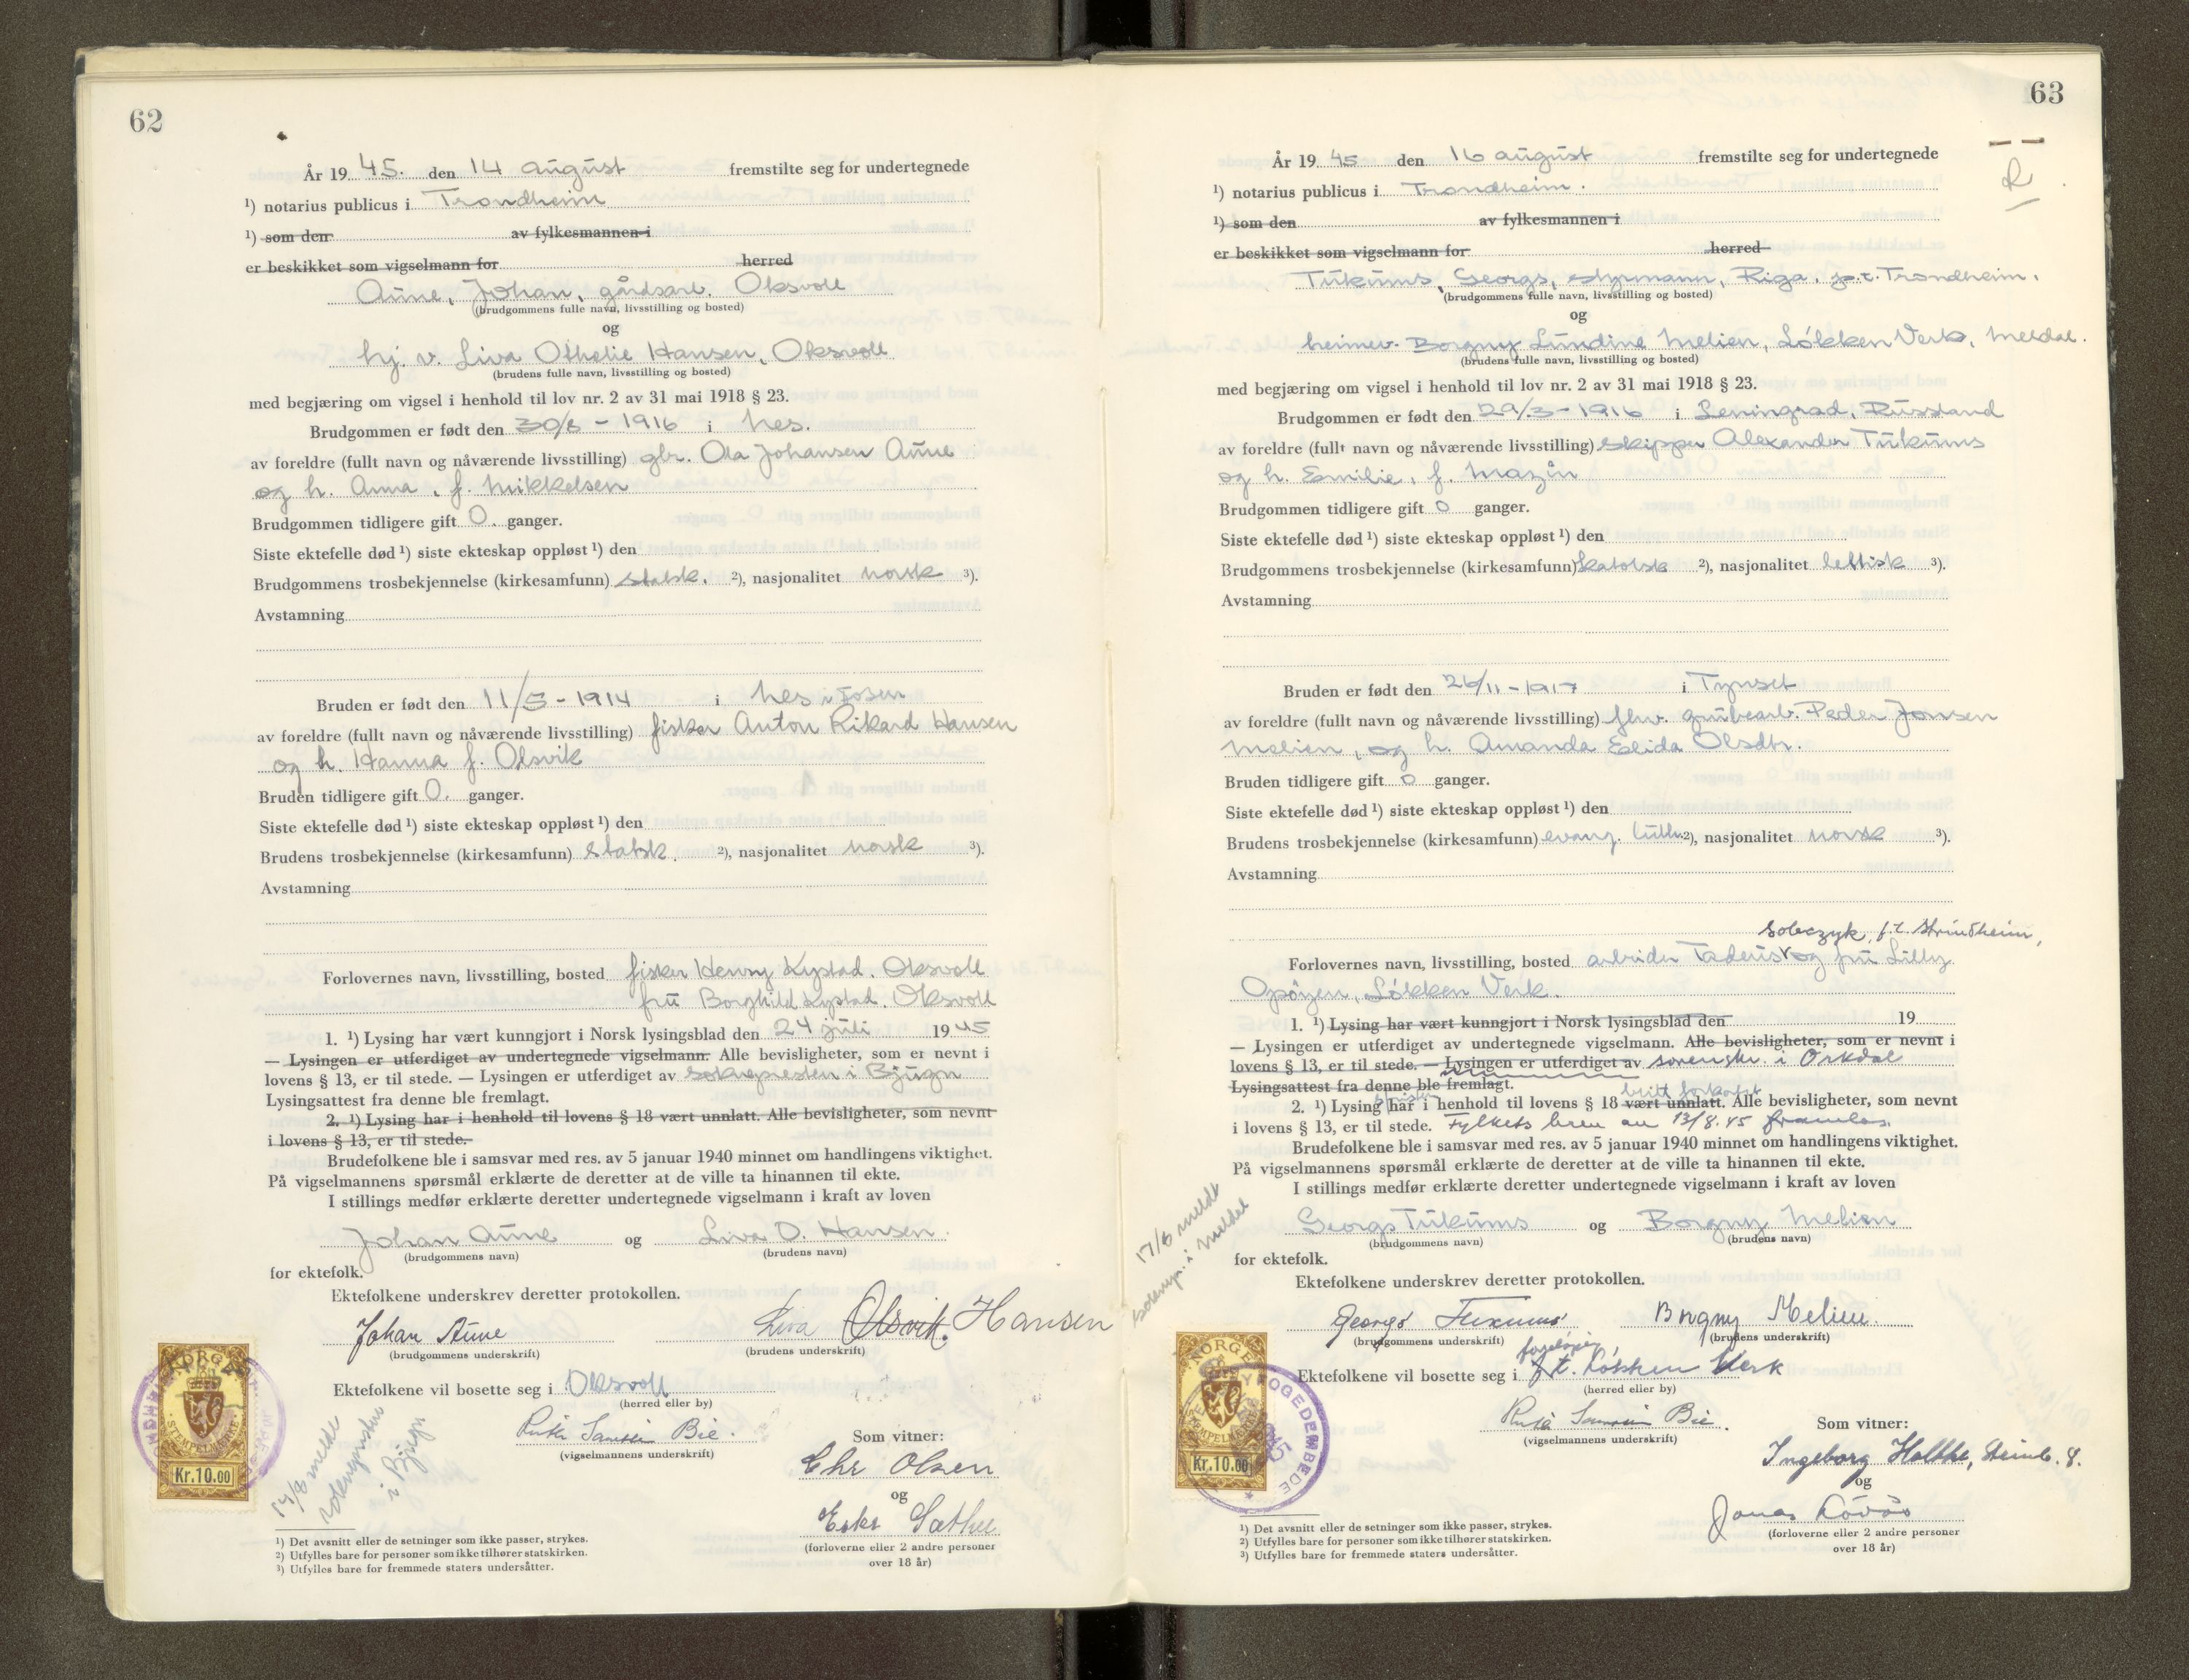 62
År 19 45. den 14 august fremstilte seg for undertegnede
¹) notarius publicus i Trondheim
¹) som den av fylkesmannen i
er beskikket som vigselmann for herred
Aune, Johan, gårdsarb. Oksvoll
(brudgommens fulle navn, livsstilling og bosted)
og
hj. v. Liva Othelie Hansen, Oksvoll
(brudens fulle navn, livsstilling og bosted)
med begjæring om vigsel i henhold til lov nr. 2 av 31 mai 1918 § 23.
Brudgommen er født den 30/8 - 1916 i Nes.
av foreldre (fullt navn og nåværende livsstilling) gbr. Ola Johansen Aune
og h. Anna, f. Mikkelsen
Brudgommen tidligere gift 0. ganger.
Siste ektefelle død ¹) siste ekteskap oppløst ¹) den
Brudgommens trosbekjennelse (kirkesamfunn) statsk. ²), nasjonalitet norsk ³).
Avstamning
Bruden er født den 11/5 - 1914 i Nes i Fosen
av foreldre (fullt navn og nåværende livsstilling) fisker Anton Rikard Hansen
og h. Hanna f. Olsvik
Bruden tidligere gift 0. ganger.
Siste ektefelle død ¹) siste ekteskap oppløst ¹) den
Brudens trosbekjennelse (kirkesamfunn) statsk. ²), nasjonalitet norsk ³).
Avstamning
Forlovernes navn, livsstilling, bosted fisker Henry Kystad. Oksvoll
fru Borghild Kystad. Oksvoll
1. ¹) Lysing har vært kunngjort i Norsk lysingsblad den 24 juli 1945
— Lysingen er utferdiget av undertegnede vigselmann. Alle bevisligheter, som er nevnt i
lovens § 13, er til stede. — Lysingen er utferdiget av soknepresten i Bjugn
Lysingsattest fra denne ble fremlagt.
2. ¹) Lysing har i henhold til lovens § 18 vært unnlatt. Alle bevisligheter, som nevnt
i lovens § 13, er til stede.
Brudefolkene ble i samsvar med res. av 5 januar 1940 minnet om handlingens viktighet.
På vigselmannens spørsmål erklærte de deretter at de ville ta hinannen til ekte.
I stillings medfør erklærte deretter undertegnede vigselmann i kraft av loven
Johan Aune og Liva O. Hansen.
(brudgommens navn) (brudens navn)
for ektefolk.
Ektefolkene underskrev deretter protokollen.
Johan Aune Liva Olsvik. Hansen
(brudgommens underskrift) (brudens underskrift)
Ektefolkene vil bosette seg i Oksvoll
(herred eller by)
Bie.
(vigselmannens underskrift)
Som vitner:
Chr Olsen
og
Sæther
(forloverne eller 2 andre personer
over 18 år)
NORGE
STEMPELMERKE
Kr.10.00
melde
sokneprestene
i Bjugn
¹) Det avsnitt eller de setninger som ikke passer, strykes.
²) Utfylles bare for personer som ikke tilhører statskirken.
³) Utfylles bare for fremmede staters undersåtter.
63
År 19 45 den 16 august fremstilte seg for undertegnede
¹) notarius publicus i Trondheim.
¹) som den av fylkesmannen i
er beskikket som vigselmann for herred
Tukums, Georgs, styrmann, Riga, p.t. Trondheim.
(brudgommens fulle navn, livsstilling og bosted)
og
heimev. Borgny Lundine Melien, Løkken Verk, Meldal.
(brudens fulle navn, livsstilling og bosted)
med begjæring om vigsel i henhold til lov nr. 2 av 31 mai 1918 § 23.
Brudgommen er født den 29/3 - 1916 i Leningrad, Russland
av foreldre (fullt navn og nåværende livsstilling) skipper Alexander Tukums
og h. Emilie, f. Mazin
Brudgommen tidligere gift 0 ganger.
Siste ektefelle død ¹) siste ekteskap oppløst ¹) den
Brudgommens trosbekjennelse (kirkesamfunn) katolsk ²), nasjonalitet lettisk ³).
Avstamning
Bruden er født den 26/11 - 1917 i Tynset
av foreldre (fullt navn og nåværende livsstilling) fhv. grubearb. Peder Jonsen
Melien, og h. Amanda Elida Olsdtr.
Bruden tidligere gift 0 ganger.
Siste ektefelle død ¹) siste ekteskap oppløst ¹) den
Brudens trosbekjennelse (kirkesamfunn) evang. luth. ²), nasjonalitet norsk ³).
Avstamning
Sobczyk, p.t. Strindheim,
Forlovernes navn, livsstilling, bosted arbeider Tadeus og fru Lilly
Opøyen, Løkken Verk.
1. ¹) Lysing har vært kunngjort i Norsk lysingsblad den 19
— Lysingen er utferdiget av undertegnede vigselmann. Alle bevisligheter, som er nevnt i
lovens § 13, er til stede. — Lysingen er utferdiget av sorenskr. i Orkdal
Lysingsattest fra denne ble fremlagt.
blitt forkortet
2. ¹) Lysing har i henhold til lovens § 18 vært unnlatt. Alle bevisligheter, som nevnt
i lovens § 13, er til stede. Fylkets brev av 13/8.45 framlas.
Brudefolkene ble i samsvar med res. av 5 januar 1940 minnet om handlingens viktighet.
På vigselmannens spørsmål erklærte de deretter at de ville ta hinannen til ekte.
I stillings medfør erklærte deretter undertegnede vigselmann i kraft av loven
Georgs Tukums og Borgny Melien
(brudgommens navn) (brudens navn)
for ektefolk.
Ektefolkene underskrev deretter protokollen.
Georgs Tukums Borgny Melien.
(brudgommens underskrift) (brudens underskrift)
Ektefolkene vil bosette seg i p.t. Løkken Verk
(herred eller by)
Bie.
(vigselmannens underskrift)
Som vitner:
Ingeborg Holthe, Steinb. 8.
og
Jonas Løvås
(forloverne eller 2 andre personer
over 18 år)
17/8 meldt
sokenpr. i Meldal
NORGE
STEMPELMERKE
Kr.10.00
¹) Det avsnitt eller de setninger som ikke passer, strykes.
²) Utfylles bare for personer som ikke tilhører statskirken.
³) Utfylles bare for fremmede staters undersåtter.